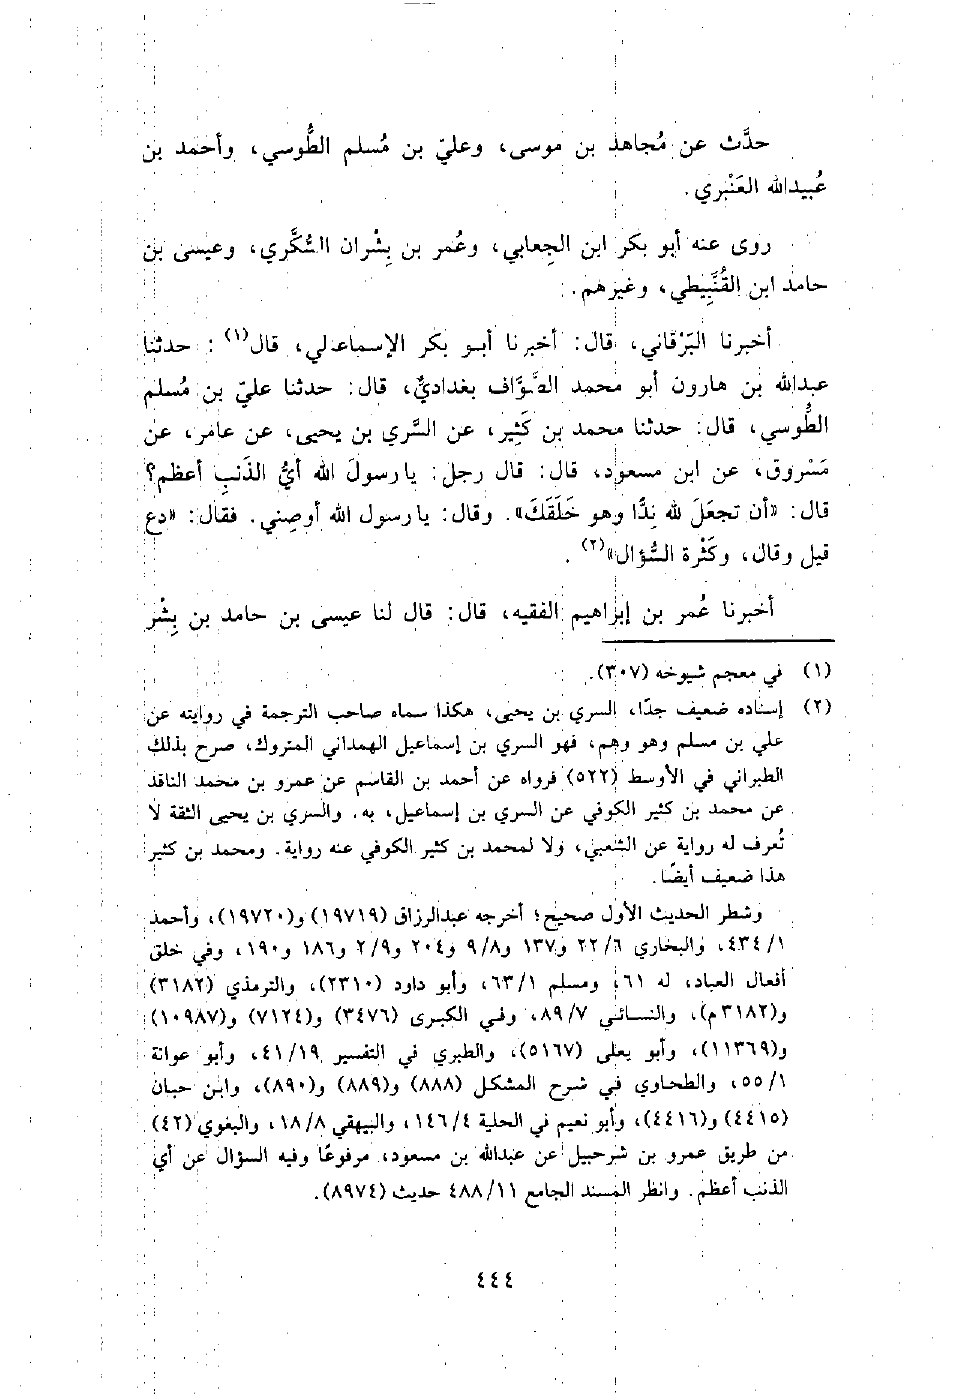 حدَّث عن مُجاهد بن موسى، وعليّ بن مُسلم الطُّوسي، وأحمد بن
عُبيدالله العَنْبري.
روى عنه أبو بكر ابن الجِعابي، وعُمر بن بِشْران السُّكَّري، وعيسى بن
حامد ابن القُنَّبِيطي، وغيرهم.
أخبرنا البَرْقاني، قال: أخبرنا أبو بكر الإسماعيلي، قال(١): حدثنا
عبدالله بن هارون أبو محمد الصَّوَّاف بغداديٌّ، قال: حدثنا عليّ بن مُسلم
الطُّوسي، قال: حدثنا محمد بن كَثِير، عن السَّري بن يحيى، عن عامر، عن
مَسْروق، عن ابن مسعود، قال: قال رجل: يا رسولَ الله أيُّ الذَنبِ أعظم؟
قال: «أن تجعَلَ لله نِدًّا وهو خَلَقَكَ». وقال: يا رسول الله أوصِني. فقال: «دع
قيل وقال، وكَثْرة السُّؤال»(٢).
أخبرنا عُمر بن إبراهيم الفقيه، قال: قال لنا عيسى بن حامد بن بِشْر
(١) في معجم شيوخه (٣٠٧).
(٢) إسناده ضعيف جدًا، السري بن يحيى، هكذا سماه صاحب الترجمة في روايته عن
علي بن مسلم وهو وهم، فهو السري بن إسماعيل الهمداني المتروك، صرح بذلك
الطبراني في الأوسط (٥٢٢) فرواه عن أحمد بن القاسم عن عمرو بن محمد الناقد
عن محمد بن كثير الكوفي عن السري بن إسماعيل، به. والسري بن يحيى الثقة لا
تُعرف له رواية عن الشعبي، ولا لمحمد بن كثير الكوفي عنه رواية. ومحمد بن كثير
هذا ضعيف أيضًا.
وشطر الحديث الأول صحيح؛ أخرجه عبدالرزاق (١٩٧١٩) و(١٩٧٢٠)، وأحمد
١/ ٤٣٤، والبخاري ٦/ ٢٢ و١٣٧ و٨/ ٩ و٢٠٤ و٩/ ٢ و١٨٦ و١٩٠، وفي خلق
أفعال العباد، له ٦١، ومسلم ١/ ٦٣، وأبو داود (٢٣١٠)، والترمذي (٣١٨٢)
و(٣١٨٢م)، والنسائي ٧/ ٨٩، وفي الكبرى (٣٤٧٦) و(٧١٢٤) و(١٠٩٨٧)
و(١١٣٦٩)، وأبو يعلى (٥١٦٧)، والطبري في التفسير ١٩/ ٤١، وأبو عوانة
١/ ٥٥، والطحاوي في شرح المشكل (٨٨٨) و(٨٨٩) و(٨٩٠)، وابن حبان
(٤٤١٥) و(٤٤١٦)، وأبو نعيم في الحلية ٤/ ١٤٦، والبيهقي ٨/ ١٨، والبغوي (٤٢)
من طريق عمرو بن شرحبيل عن عبدالله بن مسعود، مرفوعًا وفيه السؤال عن أي
الذنب أعظم. وانظر المسند الجامع ١١/ ٤٨٨ حديث (٨٩٧٤).
٤٤٤